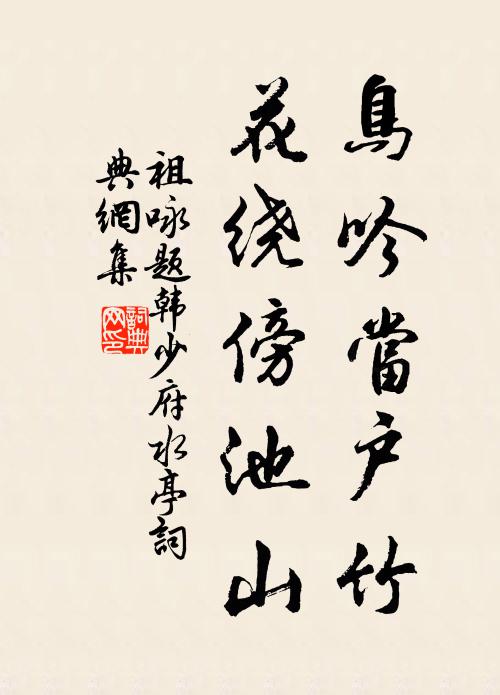 鳥吟當户竹
花绕傍池山
祖咏題韩少府水亭詞
典網集
詞典网印